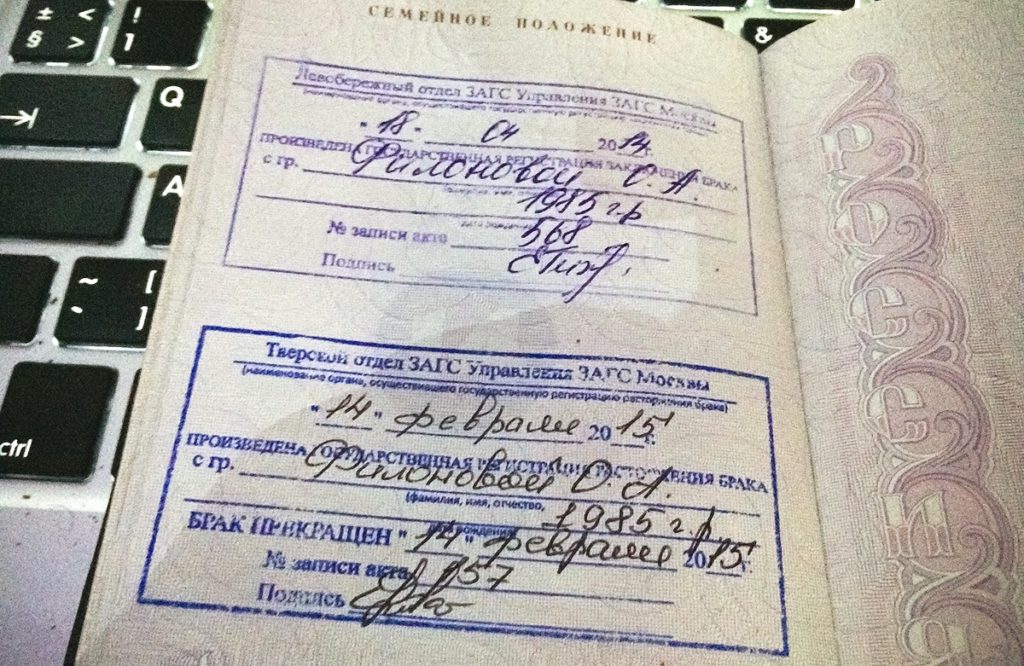 СЕМЕЙНОЕ ПОЛОЖЕНИЕ
Левобережный отдел ЗАГС Управления ЗАГС Москвы
"18" 04 2014г.
ПРОИЗВЕДЕНА ГОСУДАРСТВЕННАЯ РЕГИСТРАЦИЯ ЗАКЛЮЧЕНИЯ БРАКА
с гр. Филоновой О. А.
1985 г р
№ записи акта 568
Подпись
Тверской отдел ЗАГС Управления ЗАГС Москвы
(наименование органа, осуществившего государственную регистрацию расторжения брака)
"14" февраля 2015г.
ПРОИЗВЕДЕНА ГОСУДАРСТВЕННАЯ РЕГИСТРАЦИЯ РАСТОРЖЕНИЯ БРАКА
с гр. Филоновой О. А.
(фамилия, имя, отчество,
1985 г р
БРАК ПРЕКРАЩЕН "14" февраля 2015г.
№ записи акта 157
Подпись
РОССИЯ
± < ! &
§ > 1
Q
A
~ [
` ]
ctrl